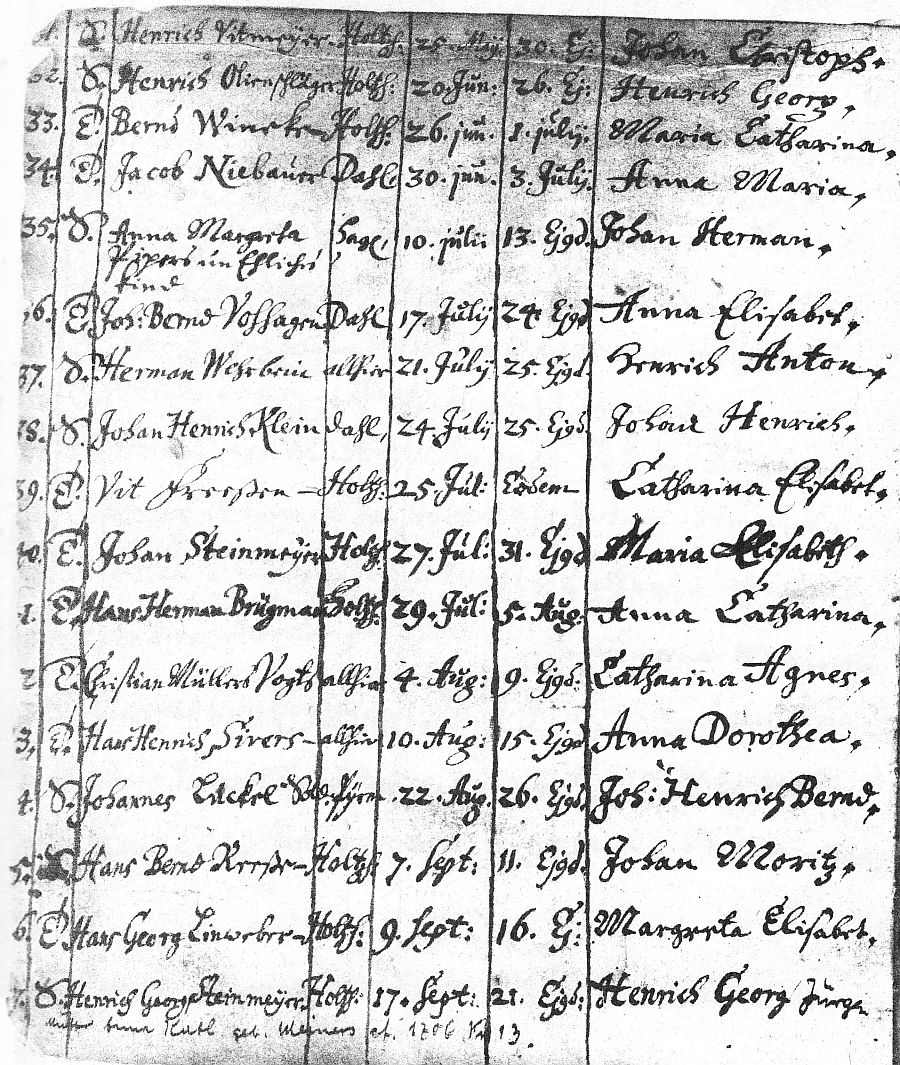 S. Henrich Vitmeÿer Holtzh: 25. Maÿ. 30. Ej: Johan Christoph.
32. S. Henrich Olienschläger Holtzh: 20. Jun: 26. Ej: Henrich Georg.
33. T. Bernd Wineke Holtzh: 26. jun. 1. julÿ. Maria Catharina.
34. T. Jacob Niebauer Dahl. 30. jun. 3. Julÿ. Anna Maria.
35. S. Anna Margreta Hage, 10. julii 13. Ejgd. Johan Herman.
Pipers un Ehliches
Kind
36. T. Joh: Bernd Voshagen Dahl 17. Julÿ 24. Ejgd Anna Elisabet.
37. S. Herman Wehrbein allhier 21. Julÿ 25. Ejgd. Henrich Anton.
38. S. Johan Henrich Klein Dahl, 24. Julÿ 25. Ejgd. Johan Henrich.
39. T. Vit Freesen Holtzh: 25. Jul: Eodem Catharina Elisabet.
40. T. Johan Steinmeÿer Holtzh 27. Jul: 31. Ejgd Maria Elisabeth.
1. T. Hans Herman Brügman Holtzh: 29. Jul: 5. Aug: Anna Catharina.
2 T. Christian Müllers Vogts allhier 4. Aug: 9. Ejgd: Catharina Agnes.
3. T. Hans Henrich Sivers allhier 10. Aug: 15. Ejgd Anna Dorothea.
4. S. Johannes Luckel Sold. Pÿrm 22. Aug. 26. Ejgd. Joh: Henrich Bernd.
5. S Hans Bernd Reese Holtzh 7. Sept: 11. Ejgd. Johan Moritz.
6. T Hans Georg Linweber Holtzh: 9. Sept: 16. Ej: Margreta Elisabet.
S. Henrich Georg Steinmeÿer Holtzh: 17. Sept: 21. Ejgd: Henrich Georg Jürgen
Mutter Anna Kath. geb. Meiners cf. 1706 Nr 13.